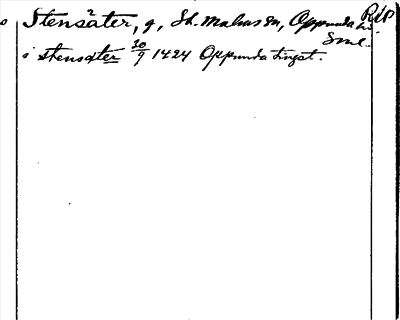 Stensäter, g, St. Malms sn, Oppunda hd. RAP
Söml.
i stensäter 30/9 1424 Oppunda tingst.